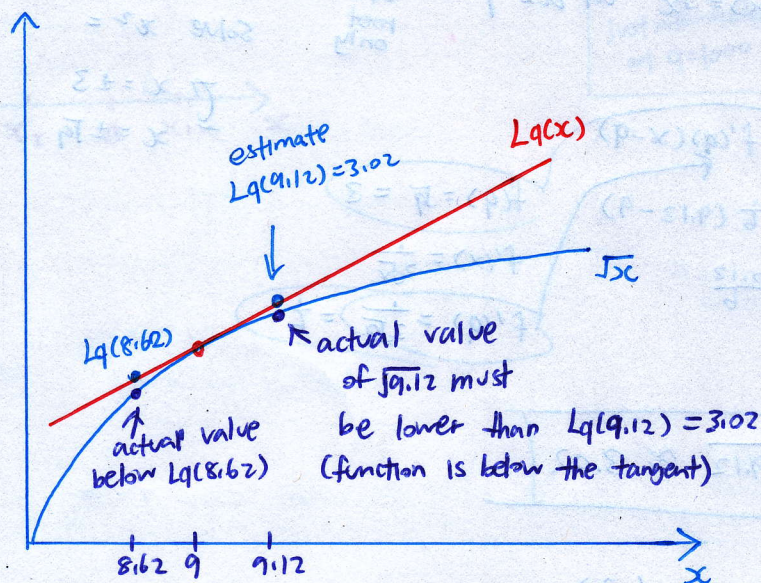 L9(x)
estimate
L9(9.12) = 3.02
√x
L9(8.62)
actual value
of √9.12 must
be lower than L9(9.12) = 3.02
(function is below the tangent)
actual value
below L9(8.62)
8.62 9 9.12
x